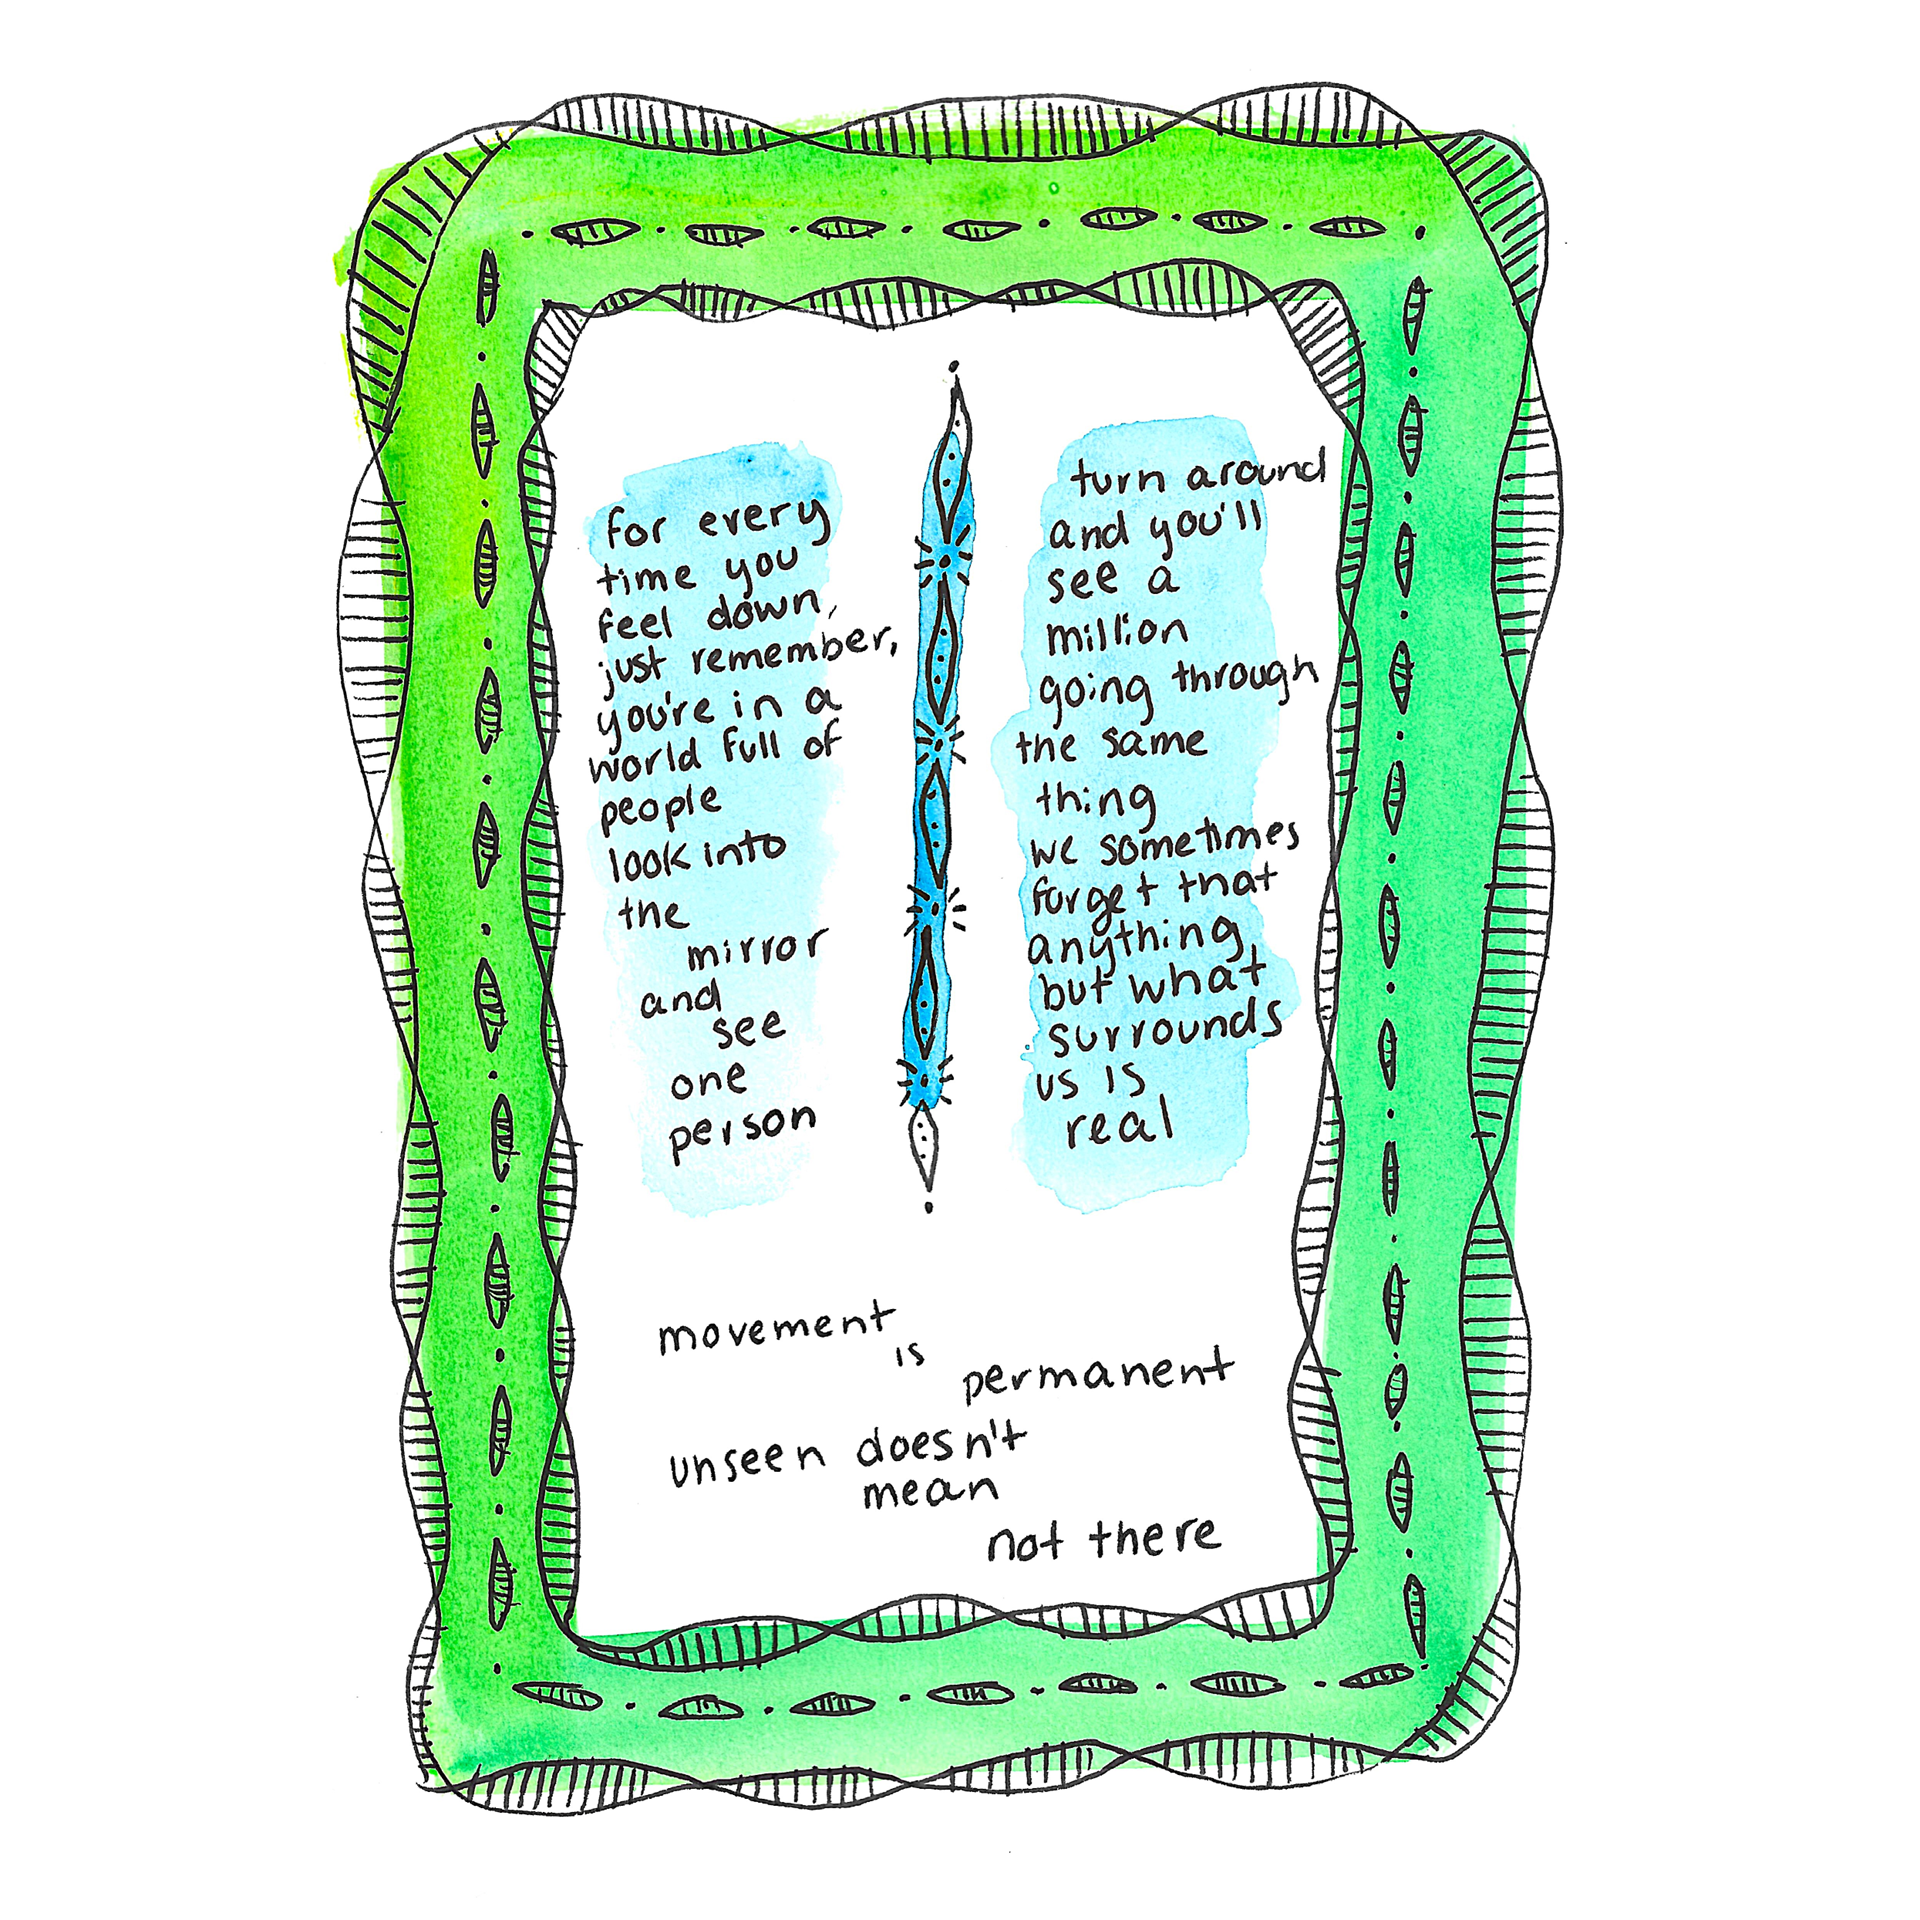 for every
time you
feel down,
just remember,
you're in a
world full of
people
look into
the
mirror
and
see
one
person
turn around
and you'll
see a
million
going through
the same
thing
we sometimes
forget that
anything,
but what
surrounds
us is
real
movement
is
permanent
unseen doesn't
mean
not there